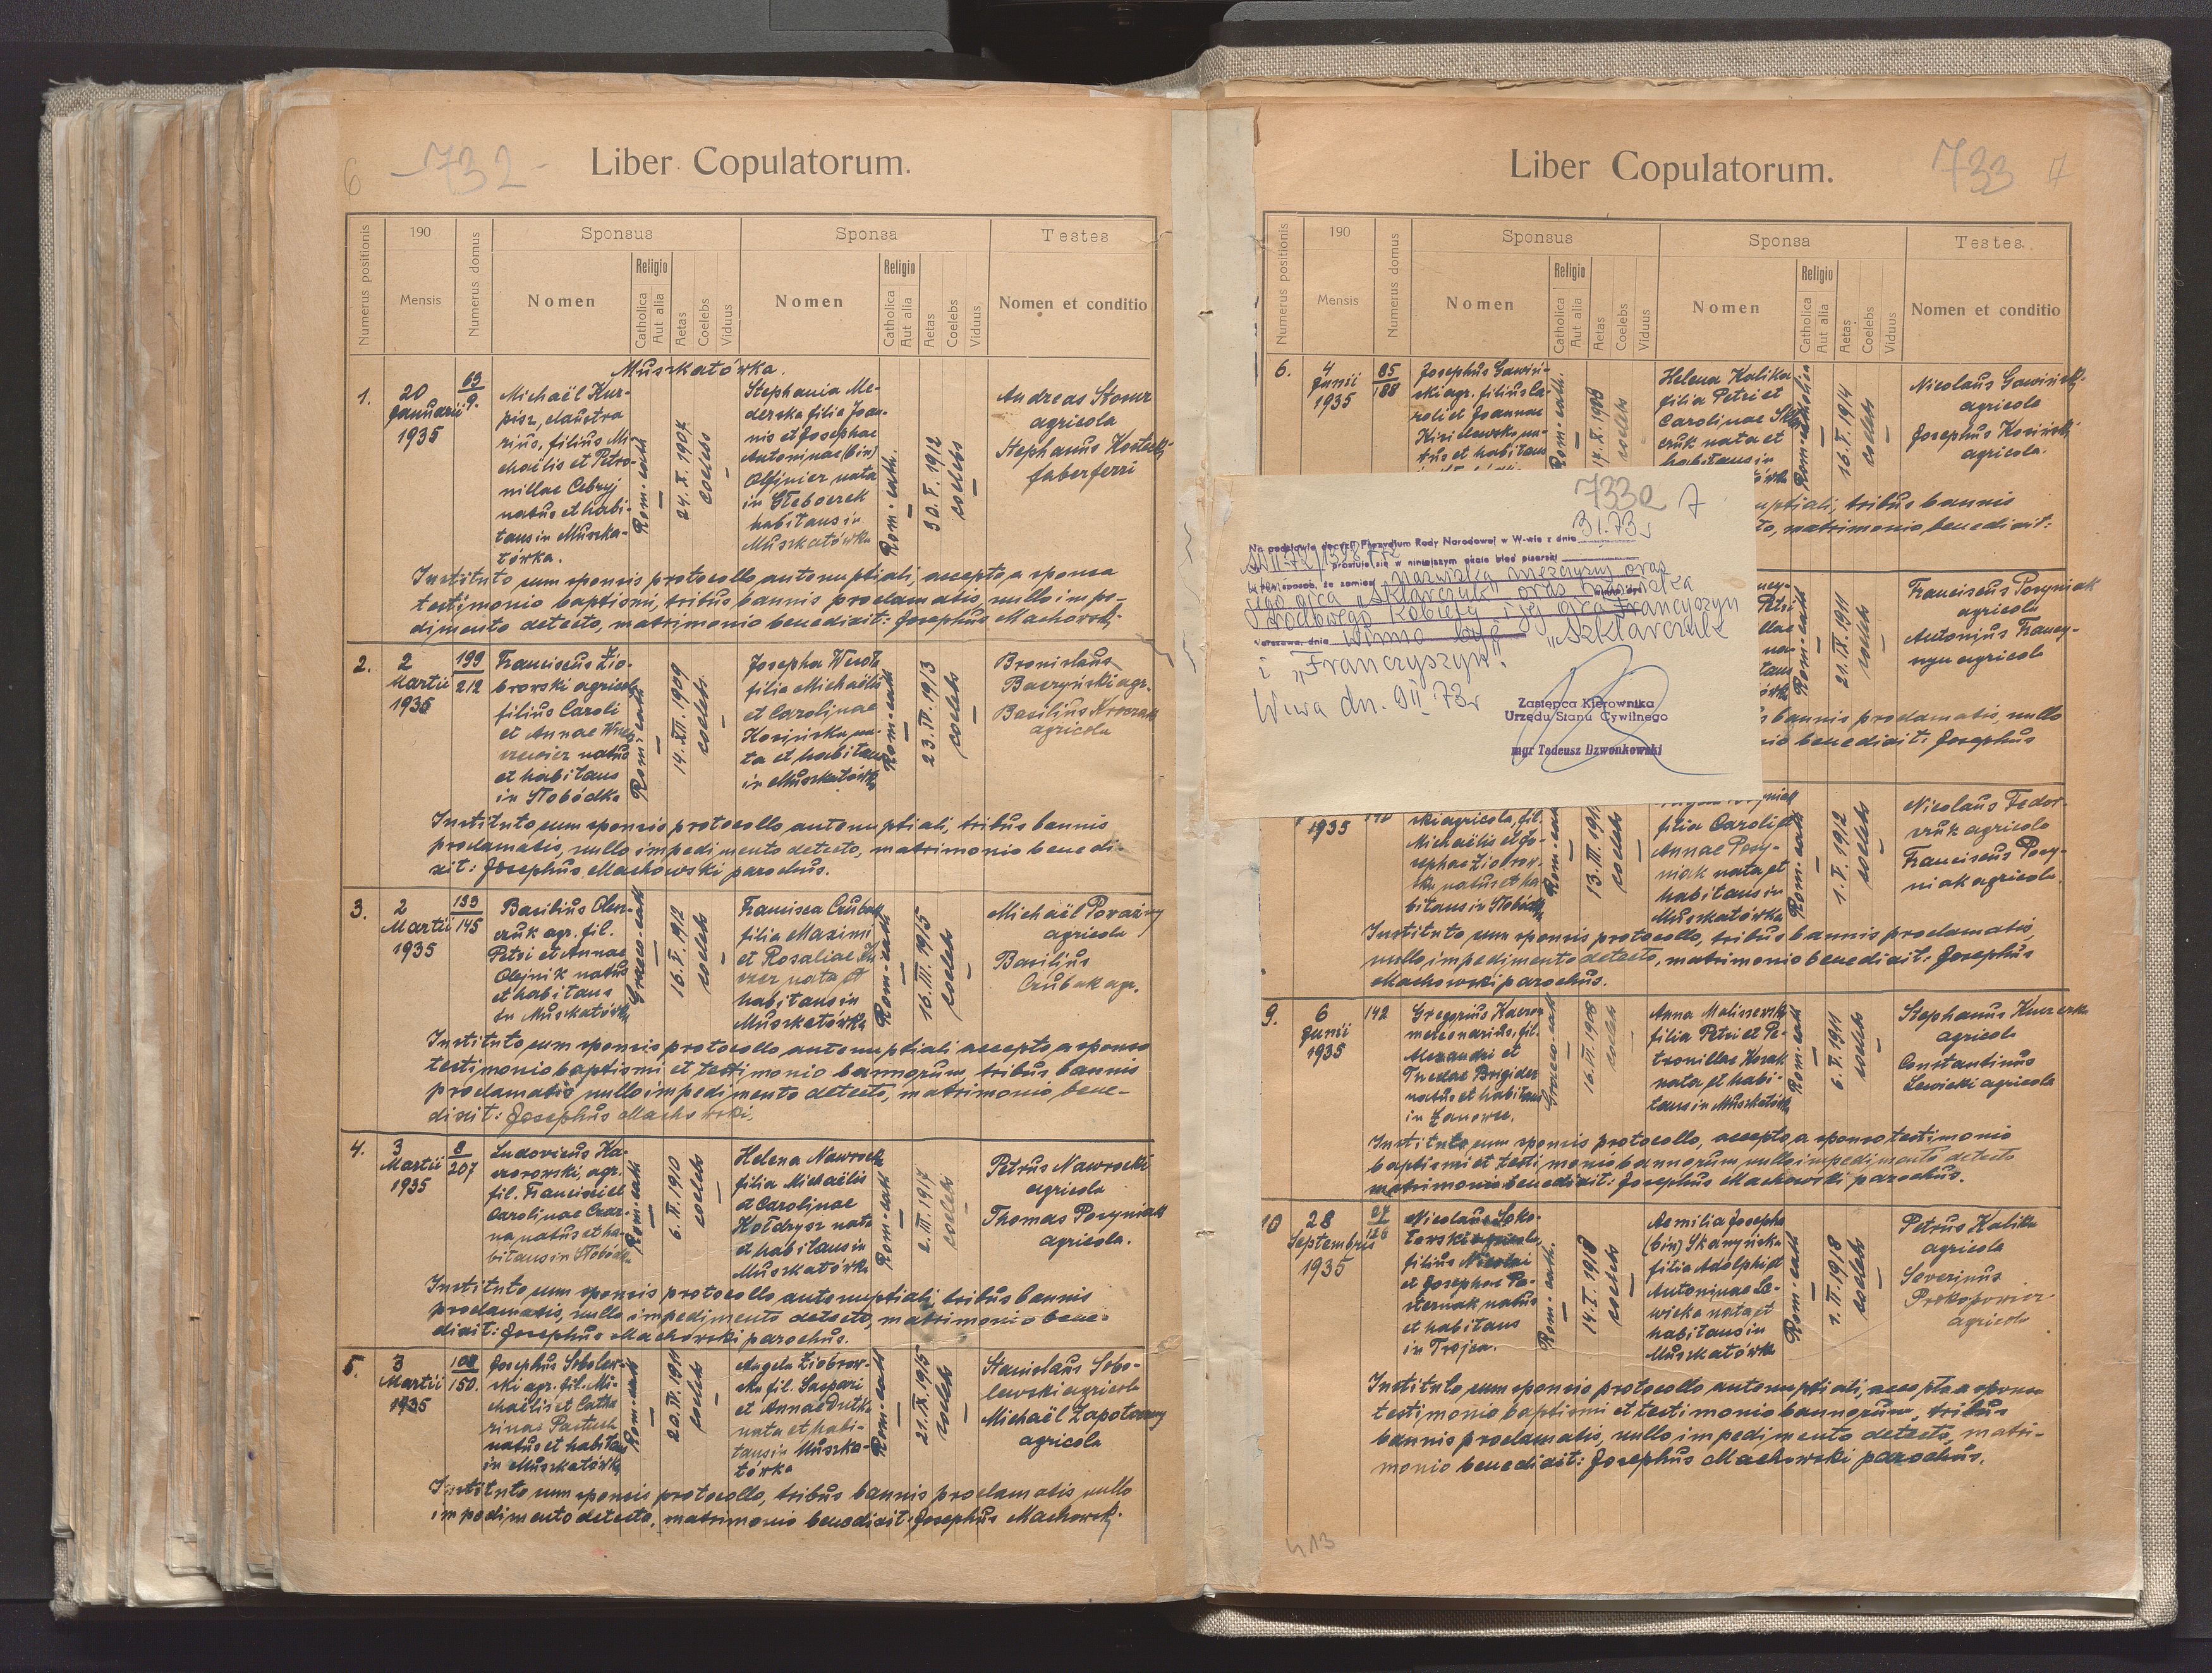 6
-732-
Liber Copulatorum.
Numerus positionis
190
Mensis
Numerus domus
Sponsus
Nomen
Religio
Catholica
Aut alia
Aetas
Coelebs
Viduus
Sponsa
Nomen
Religio
Catholica
Aut alia
Aetas
Coelebs
Viduus
Testes
Nomen et conditio
Muszkatówka.
1.
20
Januarii
1935
63
9.
Michaël Kur-
pisz, claustra
rius, filius Mi-
chaëlis et Petro-
nillae Cebryj
natus et habi-
tans in Muszka-
tówka.
Rom.-cath
24. X. 1907
coelebs
Stephania Me-
derska filia Joan-
nis et Josephae
Antoninae (bin)
nata
in Głęboczek
habitans in
Muszkatówka
Rom.-cath.
30. V. 1912
coelebs
Andreas
agricola
Stephanus Kostecki
faber ferri
Instituto cum sponsis protocollo antenuptiali, accepto a sponsa
testimonio baptismi, tribus bannis proclamatis, nullo impe-
dimento detecto, matrimonio benedixit: Josephus Machowski.
2.
2
Martii
1935
199
212
Franciscus Zio-
browski agricola
filius Caroli
et Annae
natus
et habitans
in Słobódka
Rom.-cath
14. XII. 1909
coelebs.
Josepha
filia Michaëlis
et Carolinae
Kosińska na-
ta et habitans
in Muszkatówka
Rom.-cath
23. IV. 1913
coelebs
Bronislaus
Baczyński agr.
Basilius Krawczuk
agricola
Instituto cum sponsis protocollo antenuptiali, tribus bannis
proclamatis, nullo impedimento detecto, matrimonio benedi-
xit: Josephus Machowski parochus.
3.
2
Martii
1935
133
145
Basilius Olen-
czuk agr. fil.
Petri et Annae
Olejnik natus
et habitans
in Muszkatówka
Graeco-cath
16. V. 1912
coelebs
Francisca Czubak
filia Maximi
et Rosaliae
nata et
habitans in
Muszkatówka
Rom-cath
16. III. 1915
coelebs
Michaël Poraźny
agricola
Basilius
Czubak agr.
Instituto cum sponsis protocollo antenuptiali accepto a sponso
testimonio baptismi et testimonio bannorum, tribus bannis
proclamatis nullo impedimento detecto, matrimonio bene-
dixit: Josephus Machowski.
4.
3
Martii
1935
8
207
Ludovicus Ka-
czorowski, agr.
fil. Francisci et
Carolinae Czar-
na natus et ha-
bitans in Słobódka
Rom-cath
6. II. 1910
coelebs
Helena Nawrocka
filia Michaëlis
et Carolinae
Kołdrysz nata
et habitans in
Muszkatówka
Rom-cath
2. III. 1917
coelebs
Petrus Nawrocki
agricola
Thomas Posyniak
agricola.
Instituto cum sponsis protocollo antenuptiali tribus bannis
proclamatis, nullo impedimento detecto, matrimonio bene-
dixit: Josephus Machowski parochus.
5.
3
Martii
1935
108
150.
Josephus Sobolew-
ski agr. fil. Mi-
chaëlis et Catha
rinae
natus et habitans
in Muszkatówka
Rom-cath
20. IV. 1911
coelebs
Angela Ziobrow-
ska fil. Caspari
et Annae Dutka
nata et habi-
tans in Muszka-
tówka
Rom-cath
21. IX. 1915
coelebs
Stanislaus Sobo-
lewski agricola
Michaël Zapotoczny
agricola
Instituto cum sponsis protocollo, tribus bannis proclamatis nullo
impedimento detecto, matrimonio benedixit: Josephus Machowski.
Liber Copulatorum.
733
7
Numerus positionis
190
Mensis
Numerus domus
Sponsus
Nomen
Religio
Catholica
Aut alia
Aetas
Coelebs
Viduus
Sponsa
Nomen
Religio
Catholica
Aut alia
Aetas
Coelebs
Viduus
Testes.
Nomen et conditio
6.
4
Junii
1935
85
188
Josephus Gawiń-
ski agr. filius Ca-
roli et Joannae
Kisielewska na-
tus et habitans
Rom.-cath.
coelebs
Helena Kalika
filia Petri et
Carolinae
czuk nata et
habitans in
Rom-catholica
16. V. 1914
coelebs
Nicolaus Gawiński.
agricola
Josephus Kosiński
agricola.
uptiali, tribus bannis
to, matrimonio benedixit:
733a 7
Na podstawie decyzji Prezydium Rady Narodowej w W-wie z dnia 3 I. 73r
prostuje się w niniejszym akcie błąd pisarski
w ten sposób, że zamiast nazwiska mężczyzny oraz
jego ojca „Sklarczyk" oraz nazwiska
rodowego kobiety i jej ojca Francyszyn
Warszawa, dnia winno być „Szklarczuk"
i „Franczyszyn".
W-wa dn. 9 II 73r
Zastępca Kierownika
Urzędu Stanu Cywilnego
mgr Tadeusz Dzwonkowski
Rom-cath
21. IX. 1911
coelebs
Franciscus Posyniak
agricola
Antonius Francy-
szyn agricola
s bannis proclamatis, nullo
nio benedixit: Josephus
1935
ski agricola, fil.
Michaëlis et Jo-
sephae Ziobrow-
ska natus et ha-
bitans in Słobódka
Rom-cath
coelebs
filia Caroli et
Annae Posy-
niak nata et
habitans in
Muszkatówka
Rom-cath
1. V. 1912
coelebs
Nicolaus Fedor-
czuk agricola
Franciscus Posy-
niak agricola.
Instituto cum sponsis protocollo, tribus bannis proclamatis,
nullo impedimento detecto, matrimonio benedixit: Josephus
Machowski parochus.
9.
6
Junii
1935
142
Gregorius
mercenarius, fil.
Alexandri et
natus et habitans
in Łanowce.
Graeco-cath
16. II. 1908
coelebs
Anna Maliszewska
filia Petri et Pe-
tronillae Kozak
nata et habi-
tans in Muszkatówka
Rom-cath
6. V. 1911
coelebs
Stephanus
agricola
Constantinus
Lewicki agricola
Instituto cum sponsis protocollo, accepto a sponso testimonio
baptismi et testimonio bannorum, nullo impedimento detecto
matrimonio benedixit: Josephus Machowski parochus.
10
28
Septembris
1935
Nicolaus Soko-
łowski agricola,
filius Nicolai
et Josephae Pa-
sternak natus
et habitans
in Trojca.
Rom-cath.
coelebs
Aemilia Josepha
(bin) Skarzyńska
filia Adolphi et
Antoninae Le-
wicka nata et
habitans in
Muszkatówka
Rom-cath
1. II. 1918
coelebs
Petrus Kalika
agricola
Severinus
Prokopowicz
agricola
Instituto cum sponsis protocollo antenuptiali, accepto a sponso
testimonio baptismi et testimonio bannorum, tribus
bannis proclamatis, nullo impedimento detecto, matri-
monio benedixit: Josephus Machowski parochus.
413